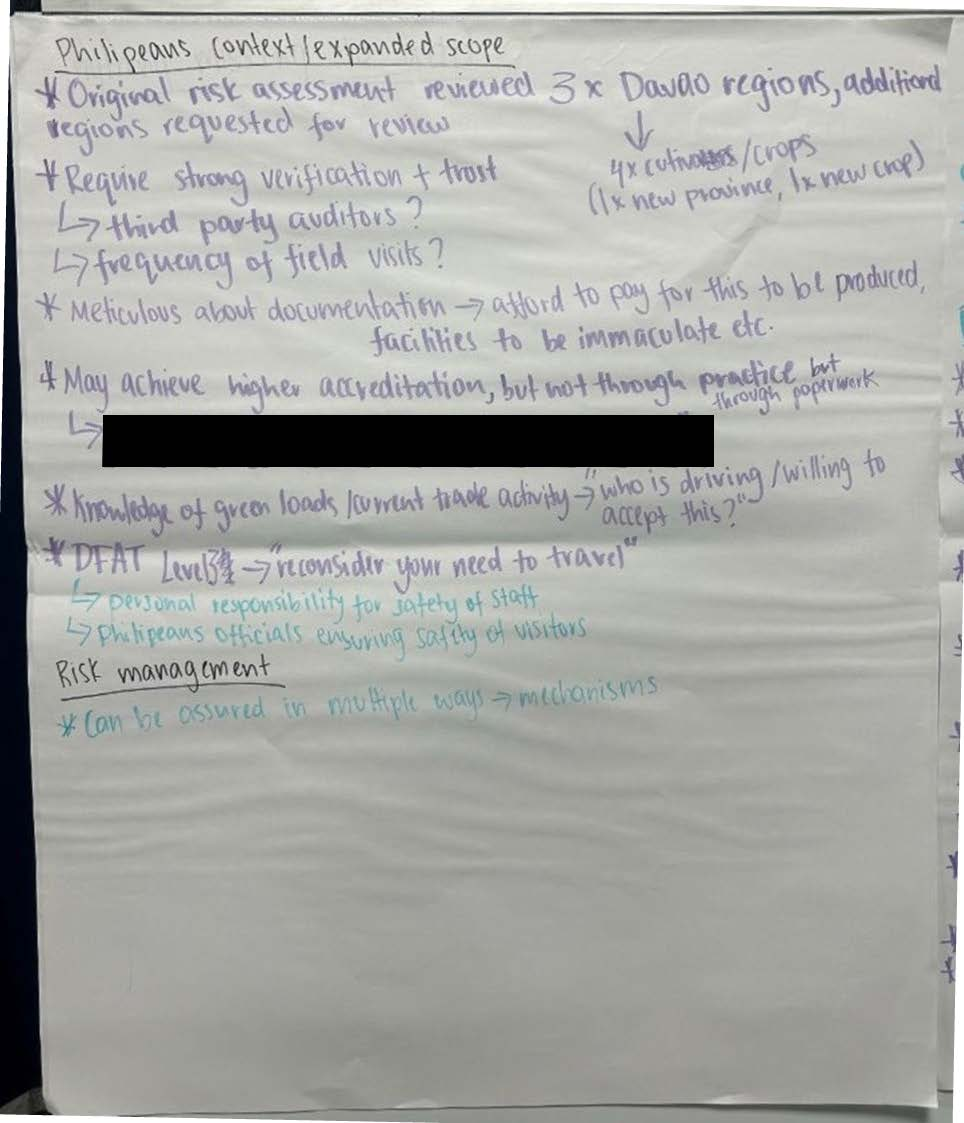 Philipeans context/expanded scope
* Original risk assessment reviewed 3x Davao regions, additional
regions requested for review
↓
4x /crops
(1x new province, 1x new crop)
* Require strong verification + trust
↳ third party auditors?
↳ frequency of field visits?
* Meticulous about documentation → afford to pay for this to be produced,
facilities to be immaculate etc.
* May achieve higher accreditation, but not through practice but
through paperwork
↳
* Knowledge of green loads /current trade activity → "who is driving/willing to
accept this?"
* DFAT Level → "reconsider your need to travel"
↳ personal responsibility for safety of staff
↳ Philipeans officials ensuring safety of visitors
Risk management
* Can be assured in multiple ways → mechanisms